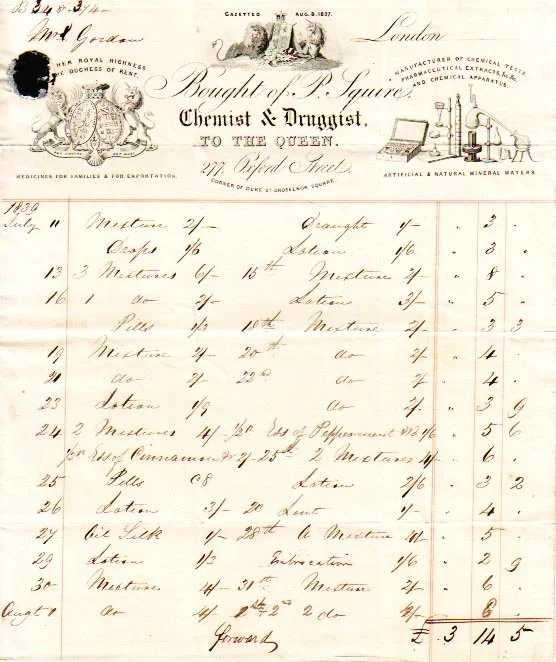 B 348-374-
GAZETTED AUG. 8. 1837.
Mrs Gordon
London
HER ROYAL HIGHNESS
THE DUCHESS OF KENT.
MANUFACTURER OF CHEMICAL TESTS
PHARMACEUTICAL EXTRACTS, &c. &c.
AND CHEMICAL APPARATUS.
Bought of P. Squire,
Chemist & Druggist,
TO THE QUEEN.
277, Oxford Street,
CORNER OF DUKE ST GROSVENOR SQUARE.
MEDICINES, FOR FAMILIES & FOR EXPORTATION.
ARTIFICIAL & NATURAL MINERAL WATERS
1839
July 11 Mixture 2/- Draught 1/- " 3 .
Drops 1/6 Lotion 1/6 " 3 .
13 3 Mixtures 6/- 15th Mixture 2/- " 8 .
16 1 do 2/- Lotion 3/- " 5 .
Pills 1/3 18th Mixture 2/- " 3 3
19 Mixture 2/- 20th do 2/- " 4 .
21 do 2/- 22d do 2/- " 4 .
23 Lotion 1/9 do 2/- " 3 9
24 2 Mixtures 4/- Ess of Peppermint 1/6 " 5 6
Ess of Cinnamon 2/- 25th 2 Mixtures 4/- " 6 .
25 Pills C8 Lotion 2/6 " 3 2
26 Lotion 3/- Lint 1/- " 4 .
27 Oil Silk 1/- 28th Mixture 4/- " 5 .
29 Lotion 1/3 Embrocation 1/6 " 2 9
30 Mixture 4/- 31st Mixture 2/- " 6 .
Augt 1 do 4/- 2nd 2 do " 6 .
forward £ 3 14 5